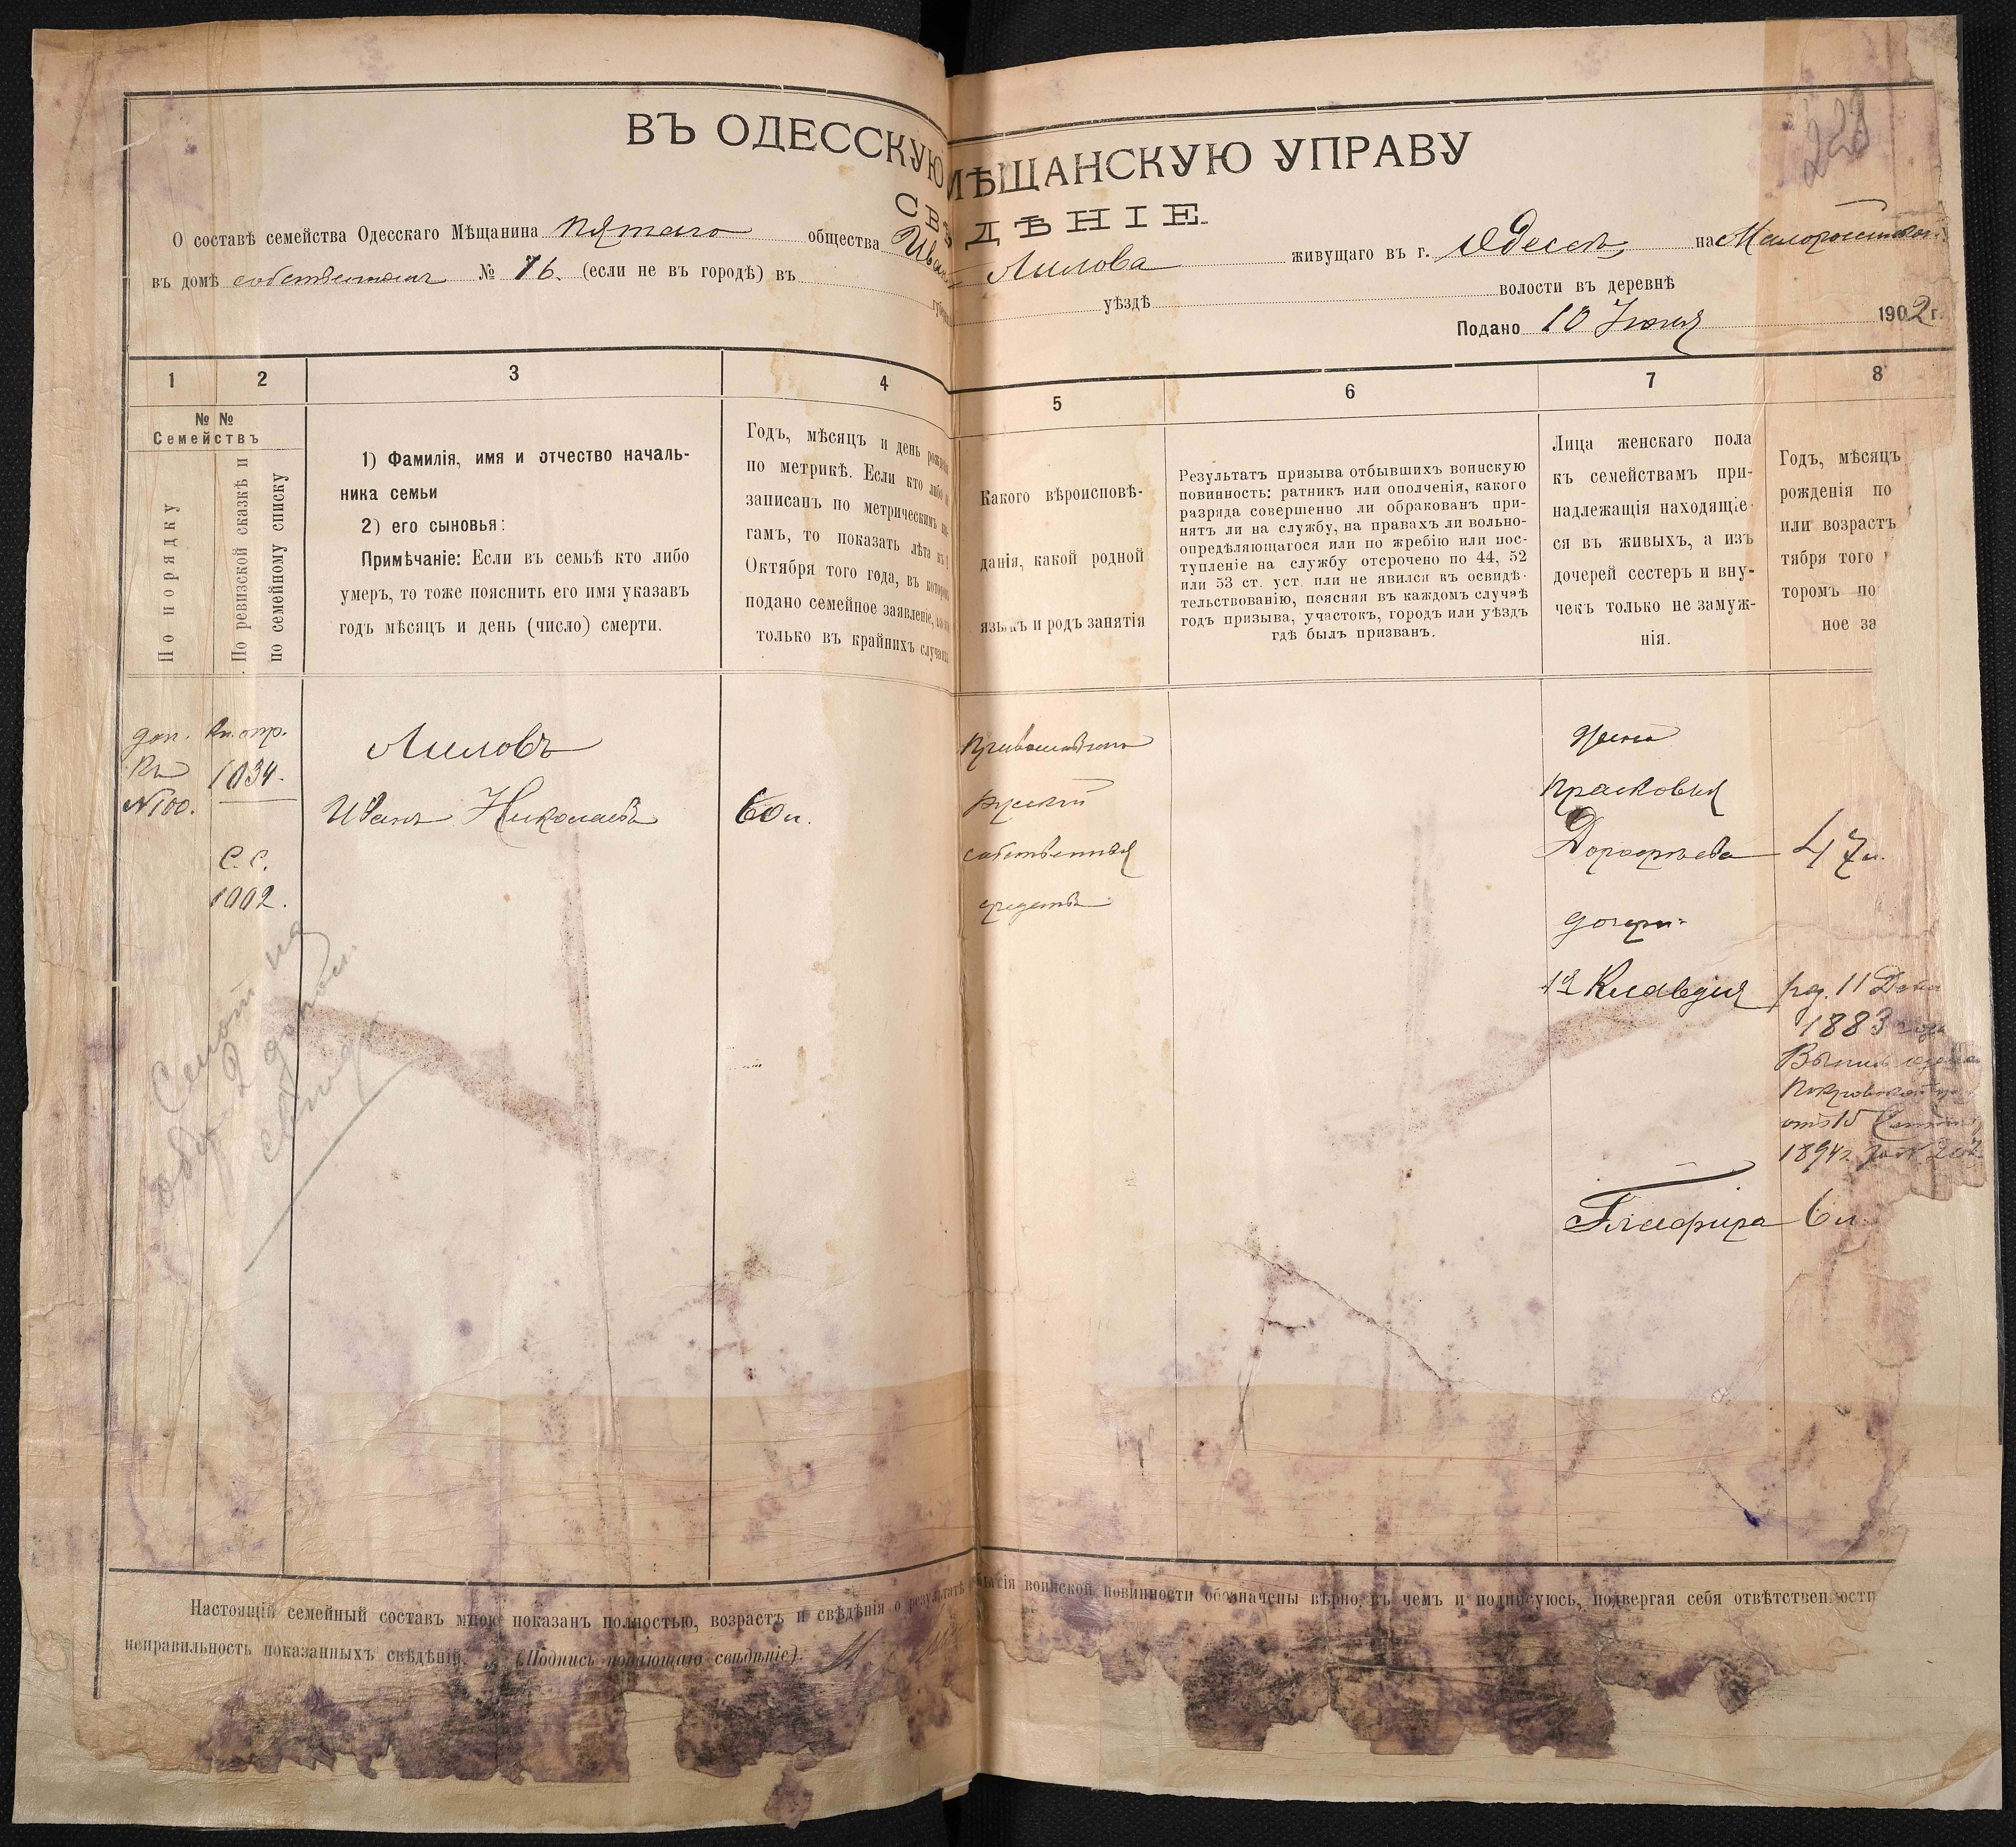 228
ВЪ ОДЕССКУЮ МѢЩАНСКУЮ УПРАВУ
СВѢДѢНІЕ
О составѣ семейства Одесскаго Мѣщанина пятаго общества Ивана Лилова живущаго въ г. Одессѣ на
въ домѣ собственномъ № 76. (если не въ городѣ) въ уѣздѣ волости въ деревнѣ
Подано 10 Іюня 1902 г.
1 2 3 4 5 6 7 8
№ №
Семействъ
По порядку
По ревизской сказкѣ и
по семейному списку
1) Фамилія, имя и отчество началь-
ника семьи
2) его сыновья:
Примѣчаніе: Если въ семьѣ кто либо
умеръ, то тоже пояснить его имя указавъ
годъ мѣсяцъ и день (число) смерти.
Годъ, мѣсяцъ и день
по метрикѣ. Если кто либо
записанъ по метрическимъ
гамъ, то показать лѣта
Октября того года, въ
подано семейное заявленіе,
только въ крайнихъ
Какого вѣроисповѣ-
данія, какой родной
языкъ и родъ занятія
Результатъ призыва отбывшихъ воинскую
повинность: ратникъ или ополченія, какого
разряда совершенно ли обракованъ при-
нятъ ли на службу, на правахъ ли вольно-
опредѣляющагося или по жребію или пос-
тупленіе на службу отсрочено по 44, 52
или 53 ст. уст. или не явился къ освидѣ-
тельствованію, поясняя въ каждомъ случаѣ
годъ призыва, участокъ, городъ или уѣздъ
гдѣ былъ призванъ.
Лица женскаго пола
къ семействамъ при-
надлежащія находящіе-
ся въ живыхъ, а изъ
дочерей сестеръ и вну-
чекъ только не замуж-
нія.
Годъ, мѣсяцъ
рожденія по
или возрастъ
тября того
торомъ по
ное за
доп.
Кн
№100.
Кн. отр.
1034.
С. С.
1002.
Лиловъ
Иванъ Николаевъ
60 л.
Православнаго
русскій
собственныя
средства
жена
Прасковья
Дорофѣева 47 л.
дочери:
1я Клавдія род. 11
1883 года
1894 г.
Глафира 6 л.
Настоящій семейный составъ мною показанъ полностью, возрастъ и свѣдѣнія о результатѣ воинской повинности обозначены вѣрно, въ чемъ и подписуюсь, подвергая себя отвѣтственности
неправильность показанныхъ свѣдѣній. (Подпись подающаго свѣдѣніе).